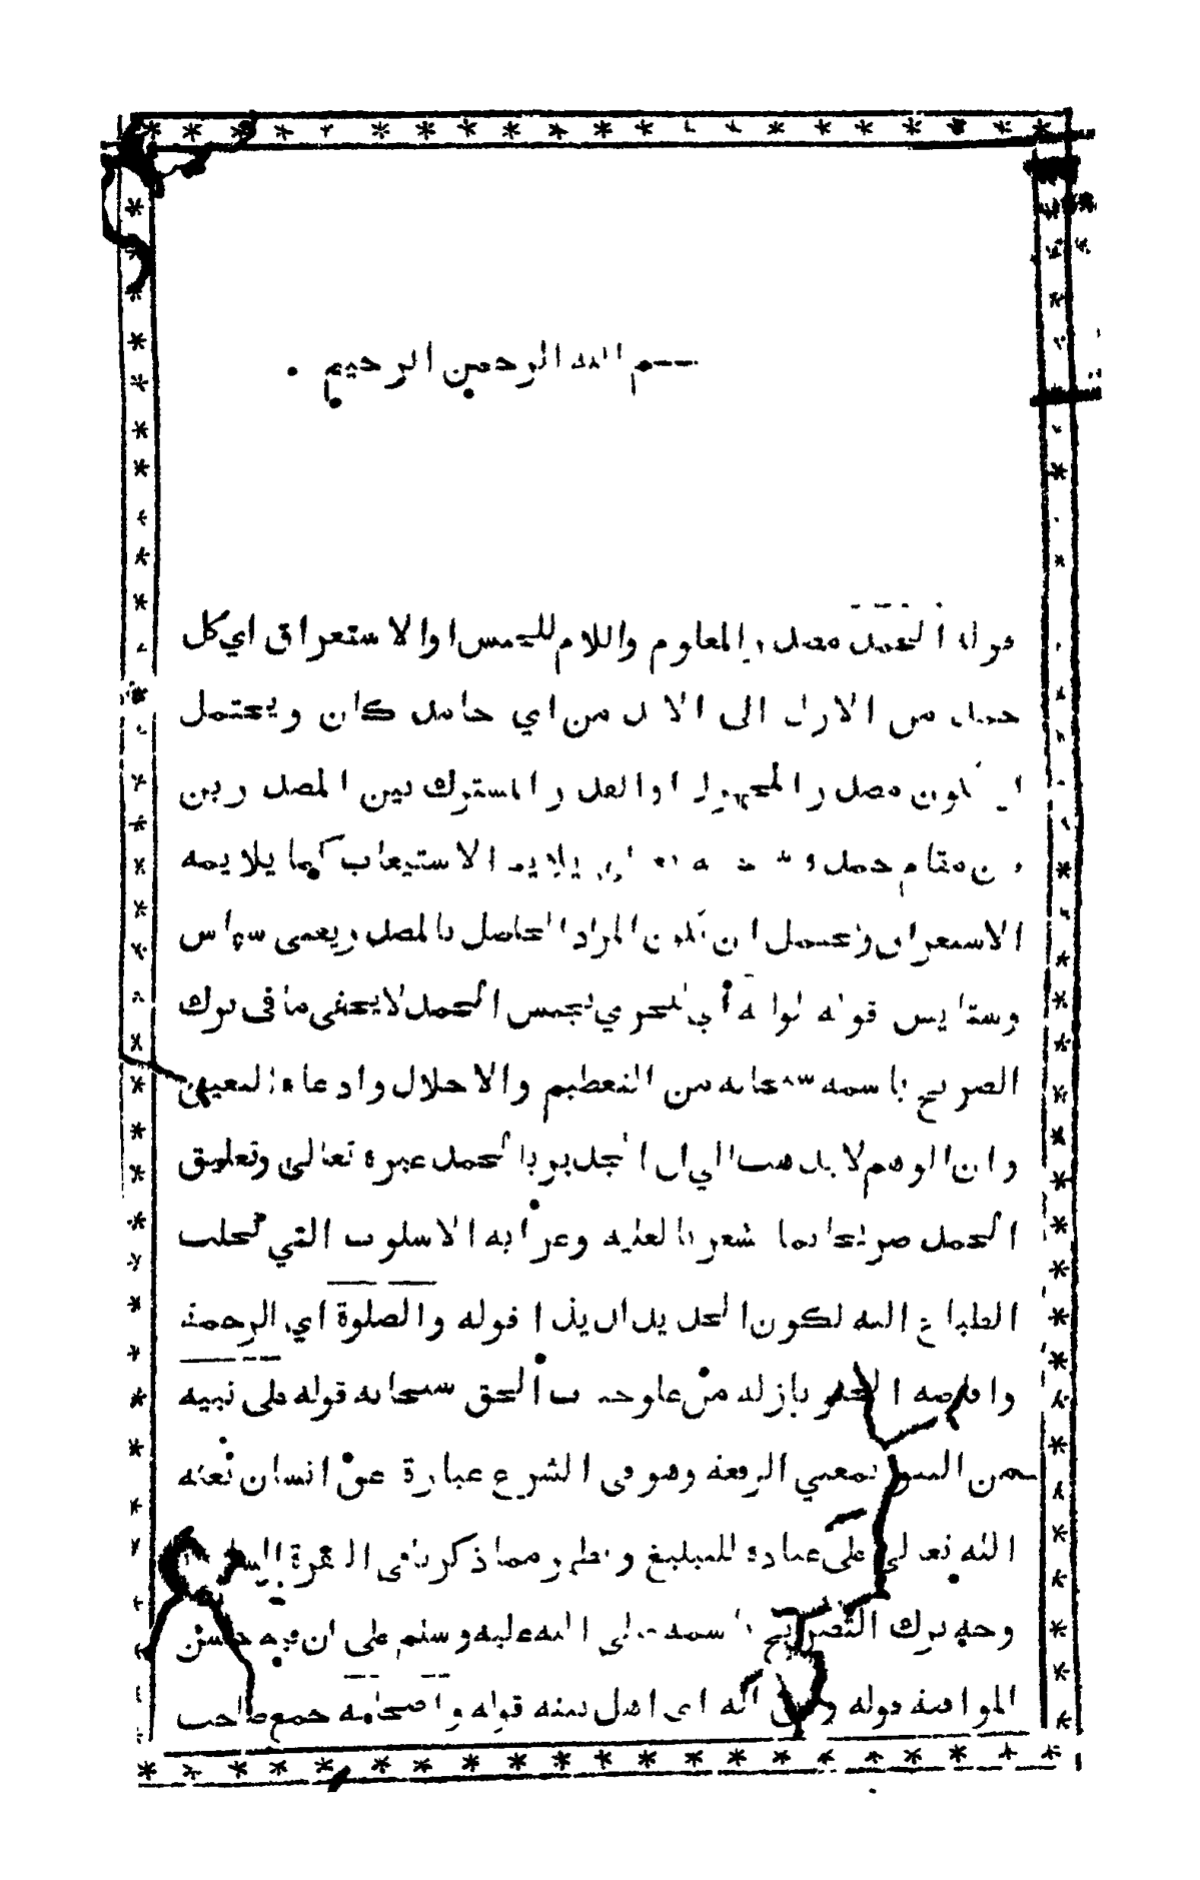 بسم الله الرحمن الرحيم
قوله الحمد مصدر المعلوم واللام للجنس او الاستغراق اي كل
حمد من الازل الى الابد من اي حامد كان ويحتمل
ان يكون مصدر المجهول او القدر المشترك بين المصدرين
مقام حمد يلايم الاستيعاب كما يلايمه
الاستغراق ويحتمل ان يكون المراد الحاصل بالمصدر ويعمى سپاس
وستايس قوله لوليه أي الحري بجنس الحمد لا يخفى ما في ترك
الصريح باسمه سبحانه من التعظيم والاجلال وادعاء التعين
وان الوهم لا يذهب الي ان الجدير بالحمد غيره تعالى وتعليق
الحمد صريحا بما يشعر بالعلية وغرابه الاسلوب التي تجلب
الطباع اليه لكون الجديد لذيذا قوله والصلوة اي الرحمة
بازله من علو جناب الحق سبحانه قوله على نبيه
من النبو بمعني الرفعة وهو في الشرع عبارة عن انسان بعثه
الله تعالى على عباده للتبليغ ويظهر مما ذكرنا في الفقرة
وجه ترك التصريح باسمه صلى الله عليه وسلم على ان فيه حسن
الموافقة قوله وعلى آله اي اهل بيته قوله واصحابه جمع صاحب